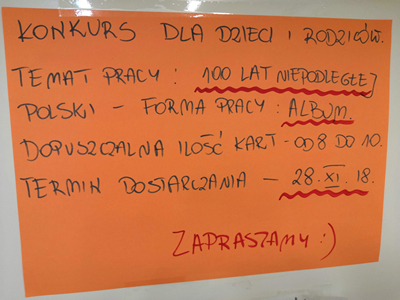 KONKURS DLA DZIECI I RODZICÓW.
TEMAT PRACY: 100 LAT NIEPODLEGŁEJ
POLSKI – FORMA PRACY: ALBUM.
DOPUSZCZALNA ILOŚĆ KART – OD 8 DO 10.
TERMIN DOSTARCZANIA – 28.XI.18.
ZAPRASZAMY :)